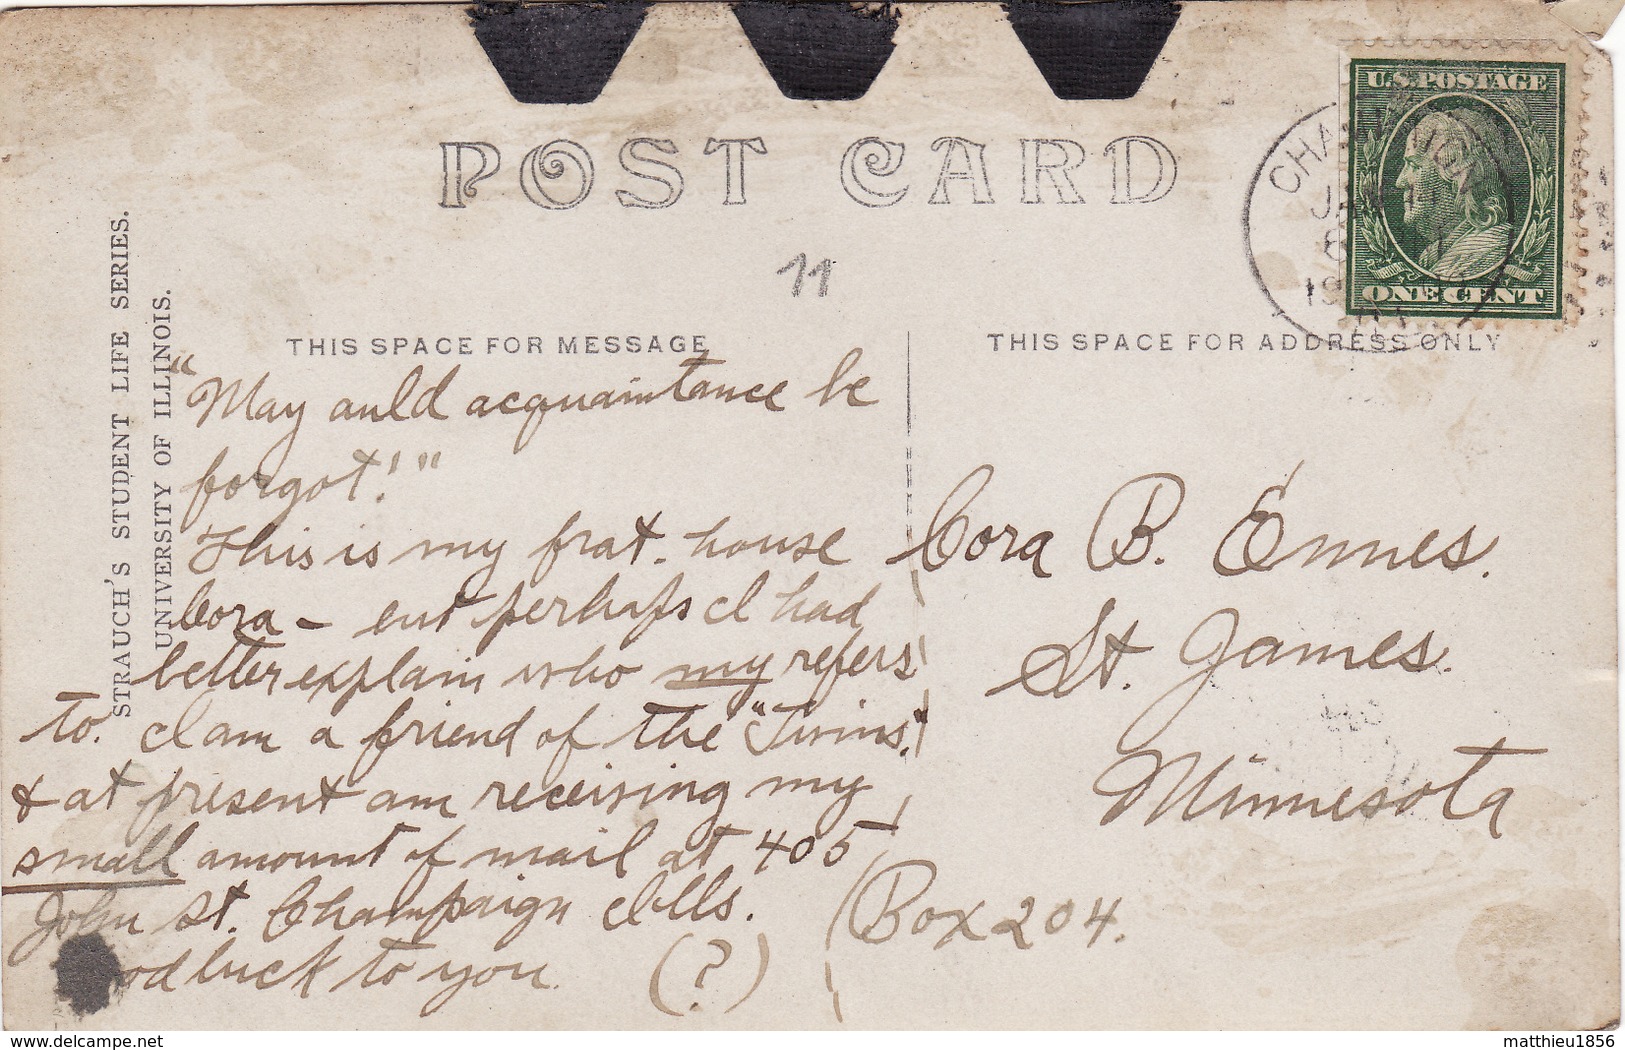 POST CARD
U.S. POSTAGE
ONE CENT
11
STRAUCH'S STUDENT LIFE SERIES.
UNIVERSITY OF ILLINOIS.
THIS SPACE FOR MESSAGE
"May auld acquaintance be
forgot!"
This is my frat. house
Cora – but perhaps I had
better explain who my refers
to. I am a friend of the "Twins."
& at present am receiving my
small amount of mail at 405
John St. Champaign Ills.
luck to you. (?)
THIS SPACE FOR ADDRESS ONLY
Cora B. Ennes.
St. James.
Minnesota
Box 204.
delcampe.net
matthieu1856